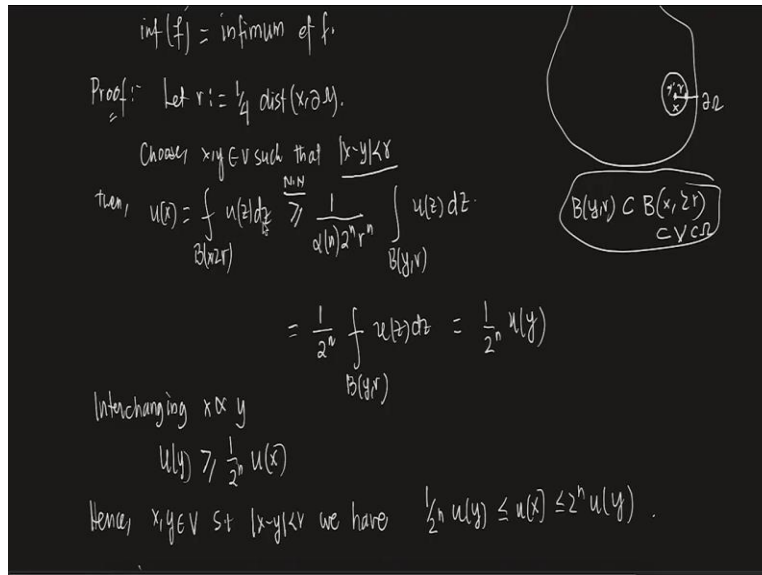 inf(f) = infimum of f.
Proof:- Let r := 1/4 dist(x, ∂Ω).
Choose, x,y ∈ V such that |x-y|<r
then, u(x) = ⨍_{B(x,2r)} u(z)dz ≥ 1/(α(n)2ⁿrⁿ) ∫_{B(y,r)} u(z)dz.
= 1/2ⁿ ⨍_{B(y,r)} u(z)dz = 1/2ⁿ u(y)
Interchanging x & y
u(y) ≥ 1/2ⁿ u(x)
Hence, x,y ∈ V s.t |x-y|<r we have 1/2ⁿ u(y) ≤ u(x) ≤ 2ⁿ u(y).
r
x
∂Ω
B(y,r) ⊂ B(x,2r)
⊂ V ⊂ Ω